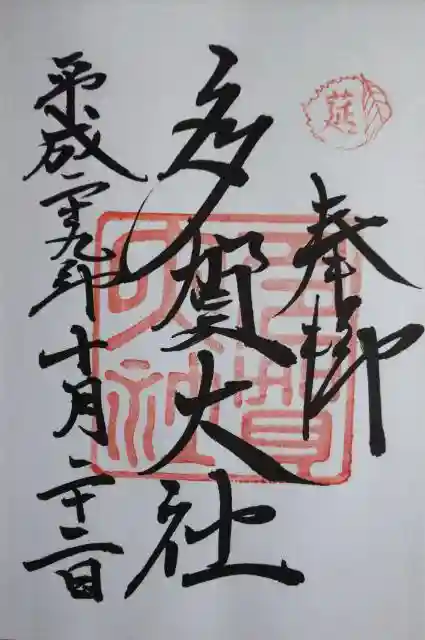 莚
奉拝
多賀大社
多賀大社
平成二十九年十月二十二日